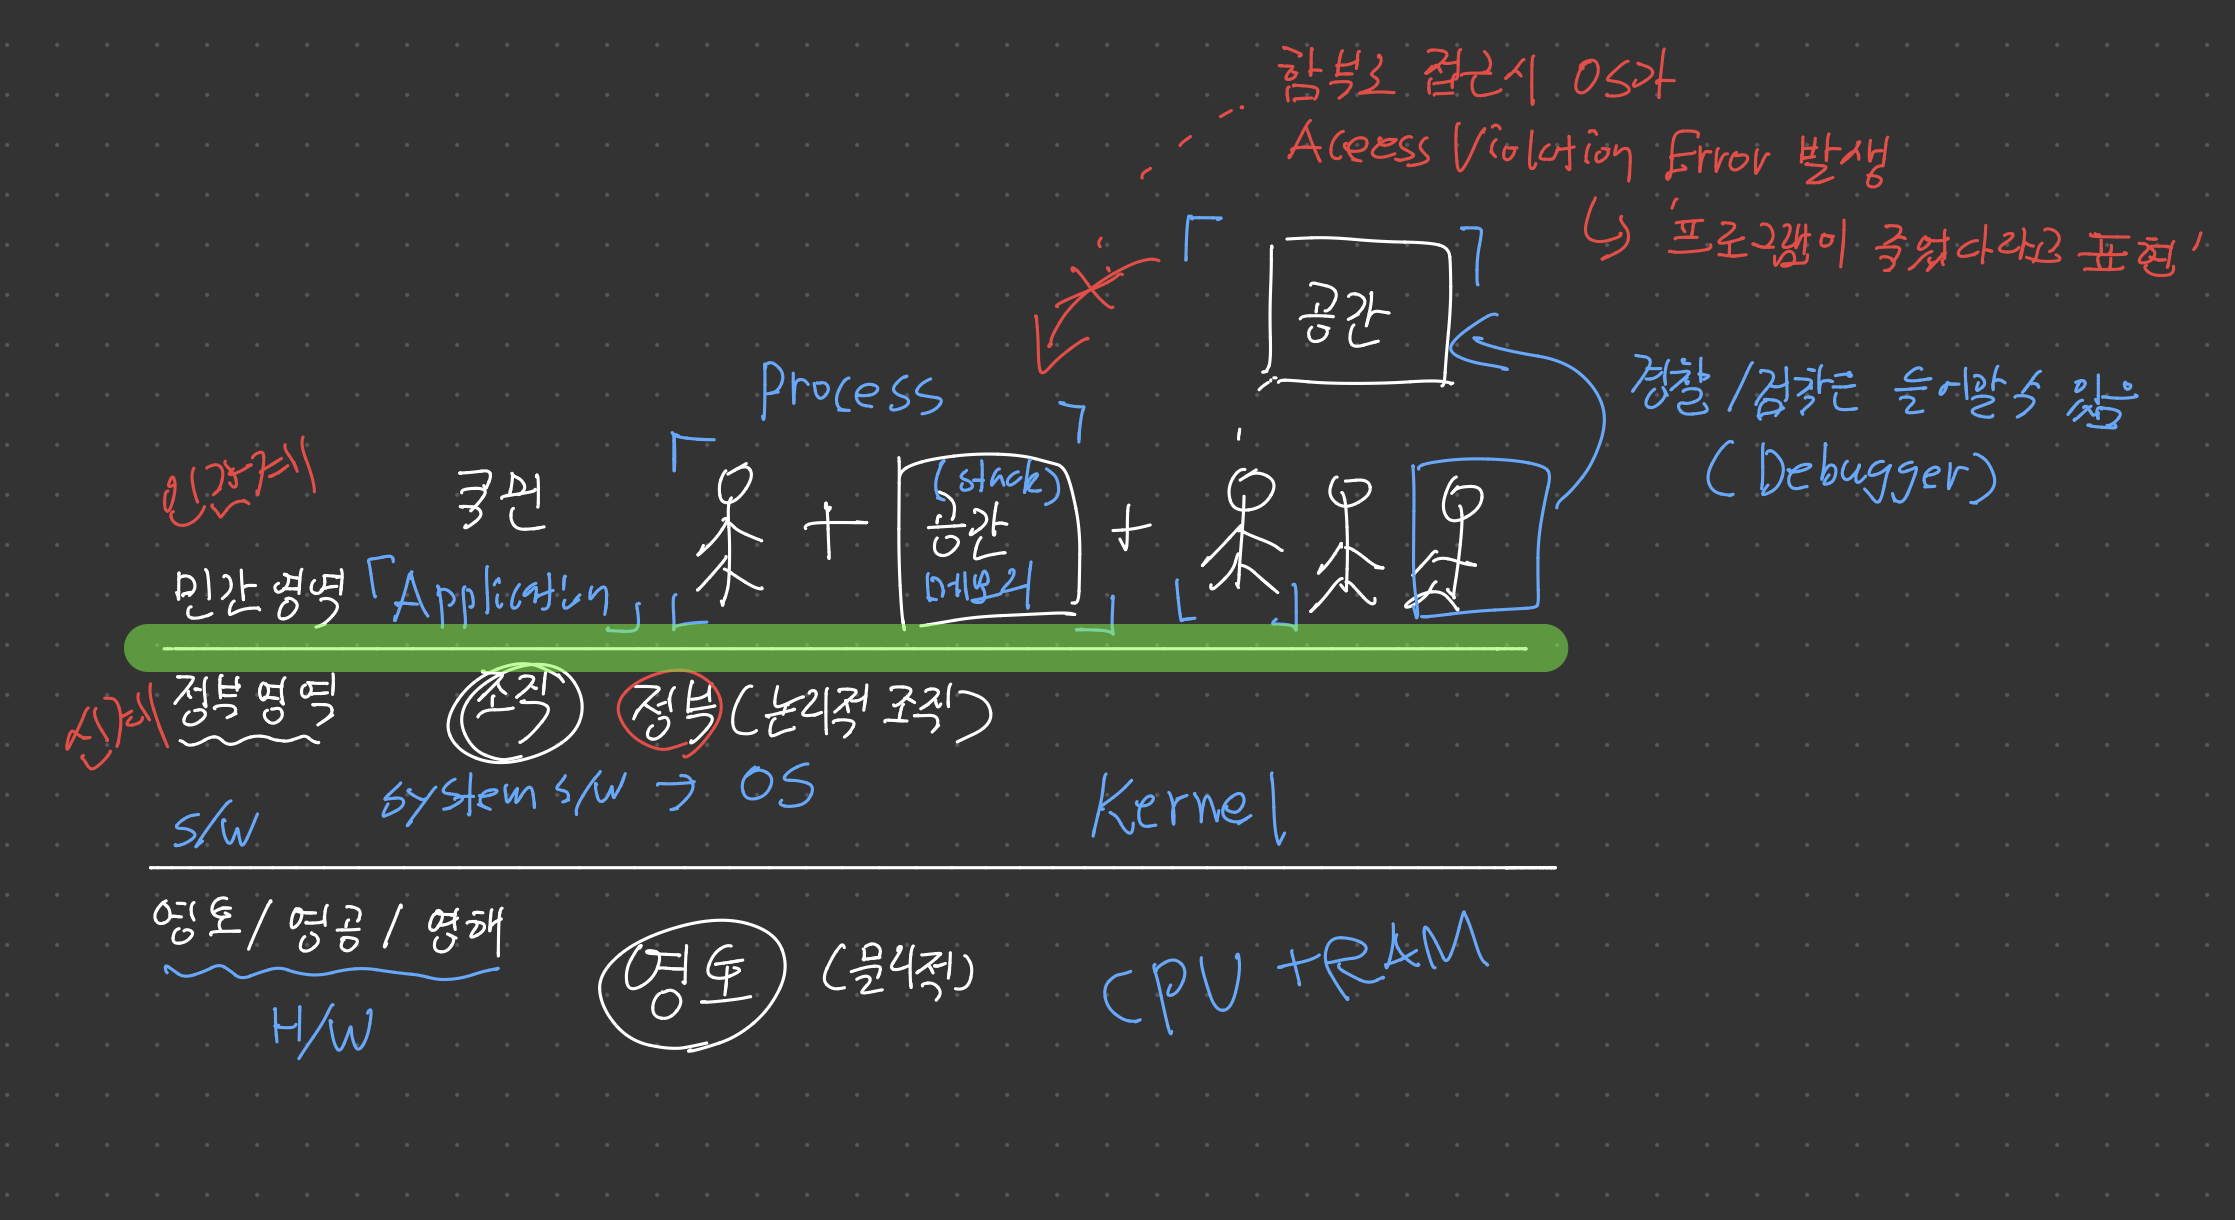 함부로 접근시 OS가
Access Violation Error 발생
↳ '프로그램이 죽었다라고 표현'
「 공간 」
Process
경찰/검찰은 들어갈 수 있음
(Debugger)
국민
(stack)
공간
메모리
+
+
민간영역 「Application」
정부영역
조직
정부 (논리적 조직)
system s/w → OS
Kernel
S/W
영토/영공/영해
영토 (물리적)
CPU + RAM
H/W